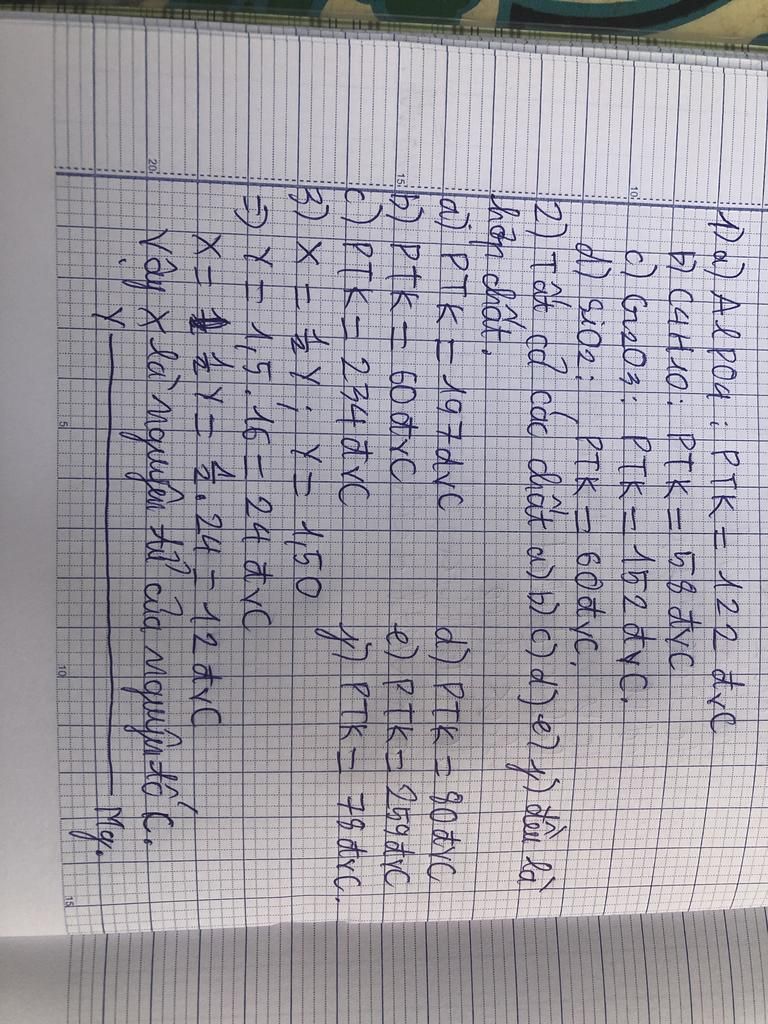 1) a) AlPO4 : PTK = 122 đvC
b) C4H10 : PTK = 58 đvC
c) Cr2O3 : PTK = 152 đvC.
d) SiO2 : PTK = 60 đvC.
2) Tất cả các chất a) b) c) d) e) f) đều là
hợp chất.
a) PTK = 197 đvC d) PTK = 80 đvC
b) PTK = 60 đvC e) PTK = 259 đvC
c) PTK = 234 đvC f) PTK = 78 đvC.
3) X = 1/2 Y ; Y = 1,5O
=> Y = 1,5 . 16 = 24 đvC
X = 1/2 Y = 1/2 . 24 = 12 đvC
Vậy X là nguyên tử của nguyên tố C.
Y ——— Mg.
10
15
20
5
10
15